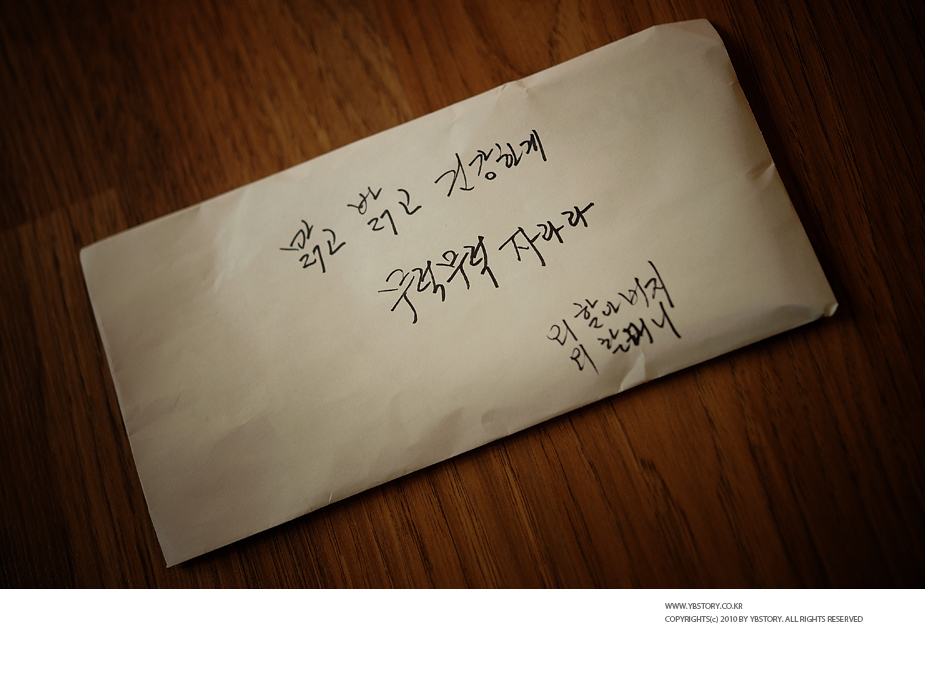 맑고 밝고 건강하게
무럭무럭 자라라
외할아버지
외할머니
WWW.YBSTORY.CO.KR
COPYRIGHTS(c) 2010 BY YBSTORY. ALL RIGHTS RESERVED